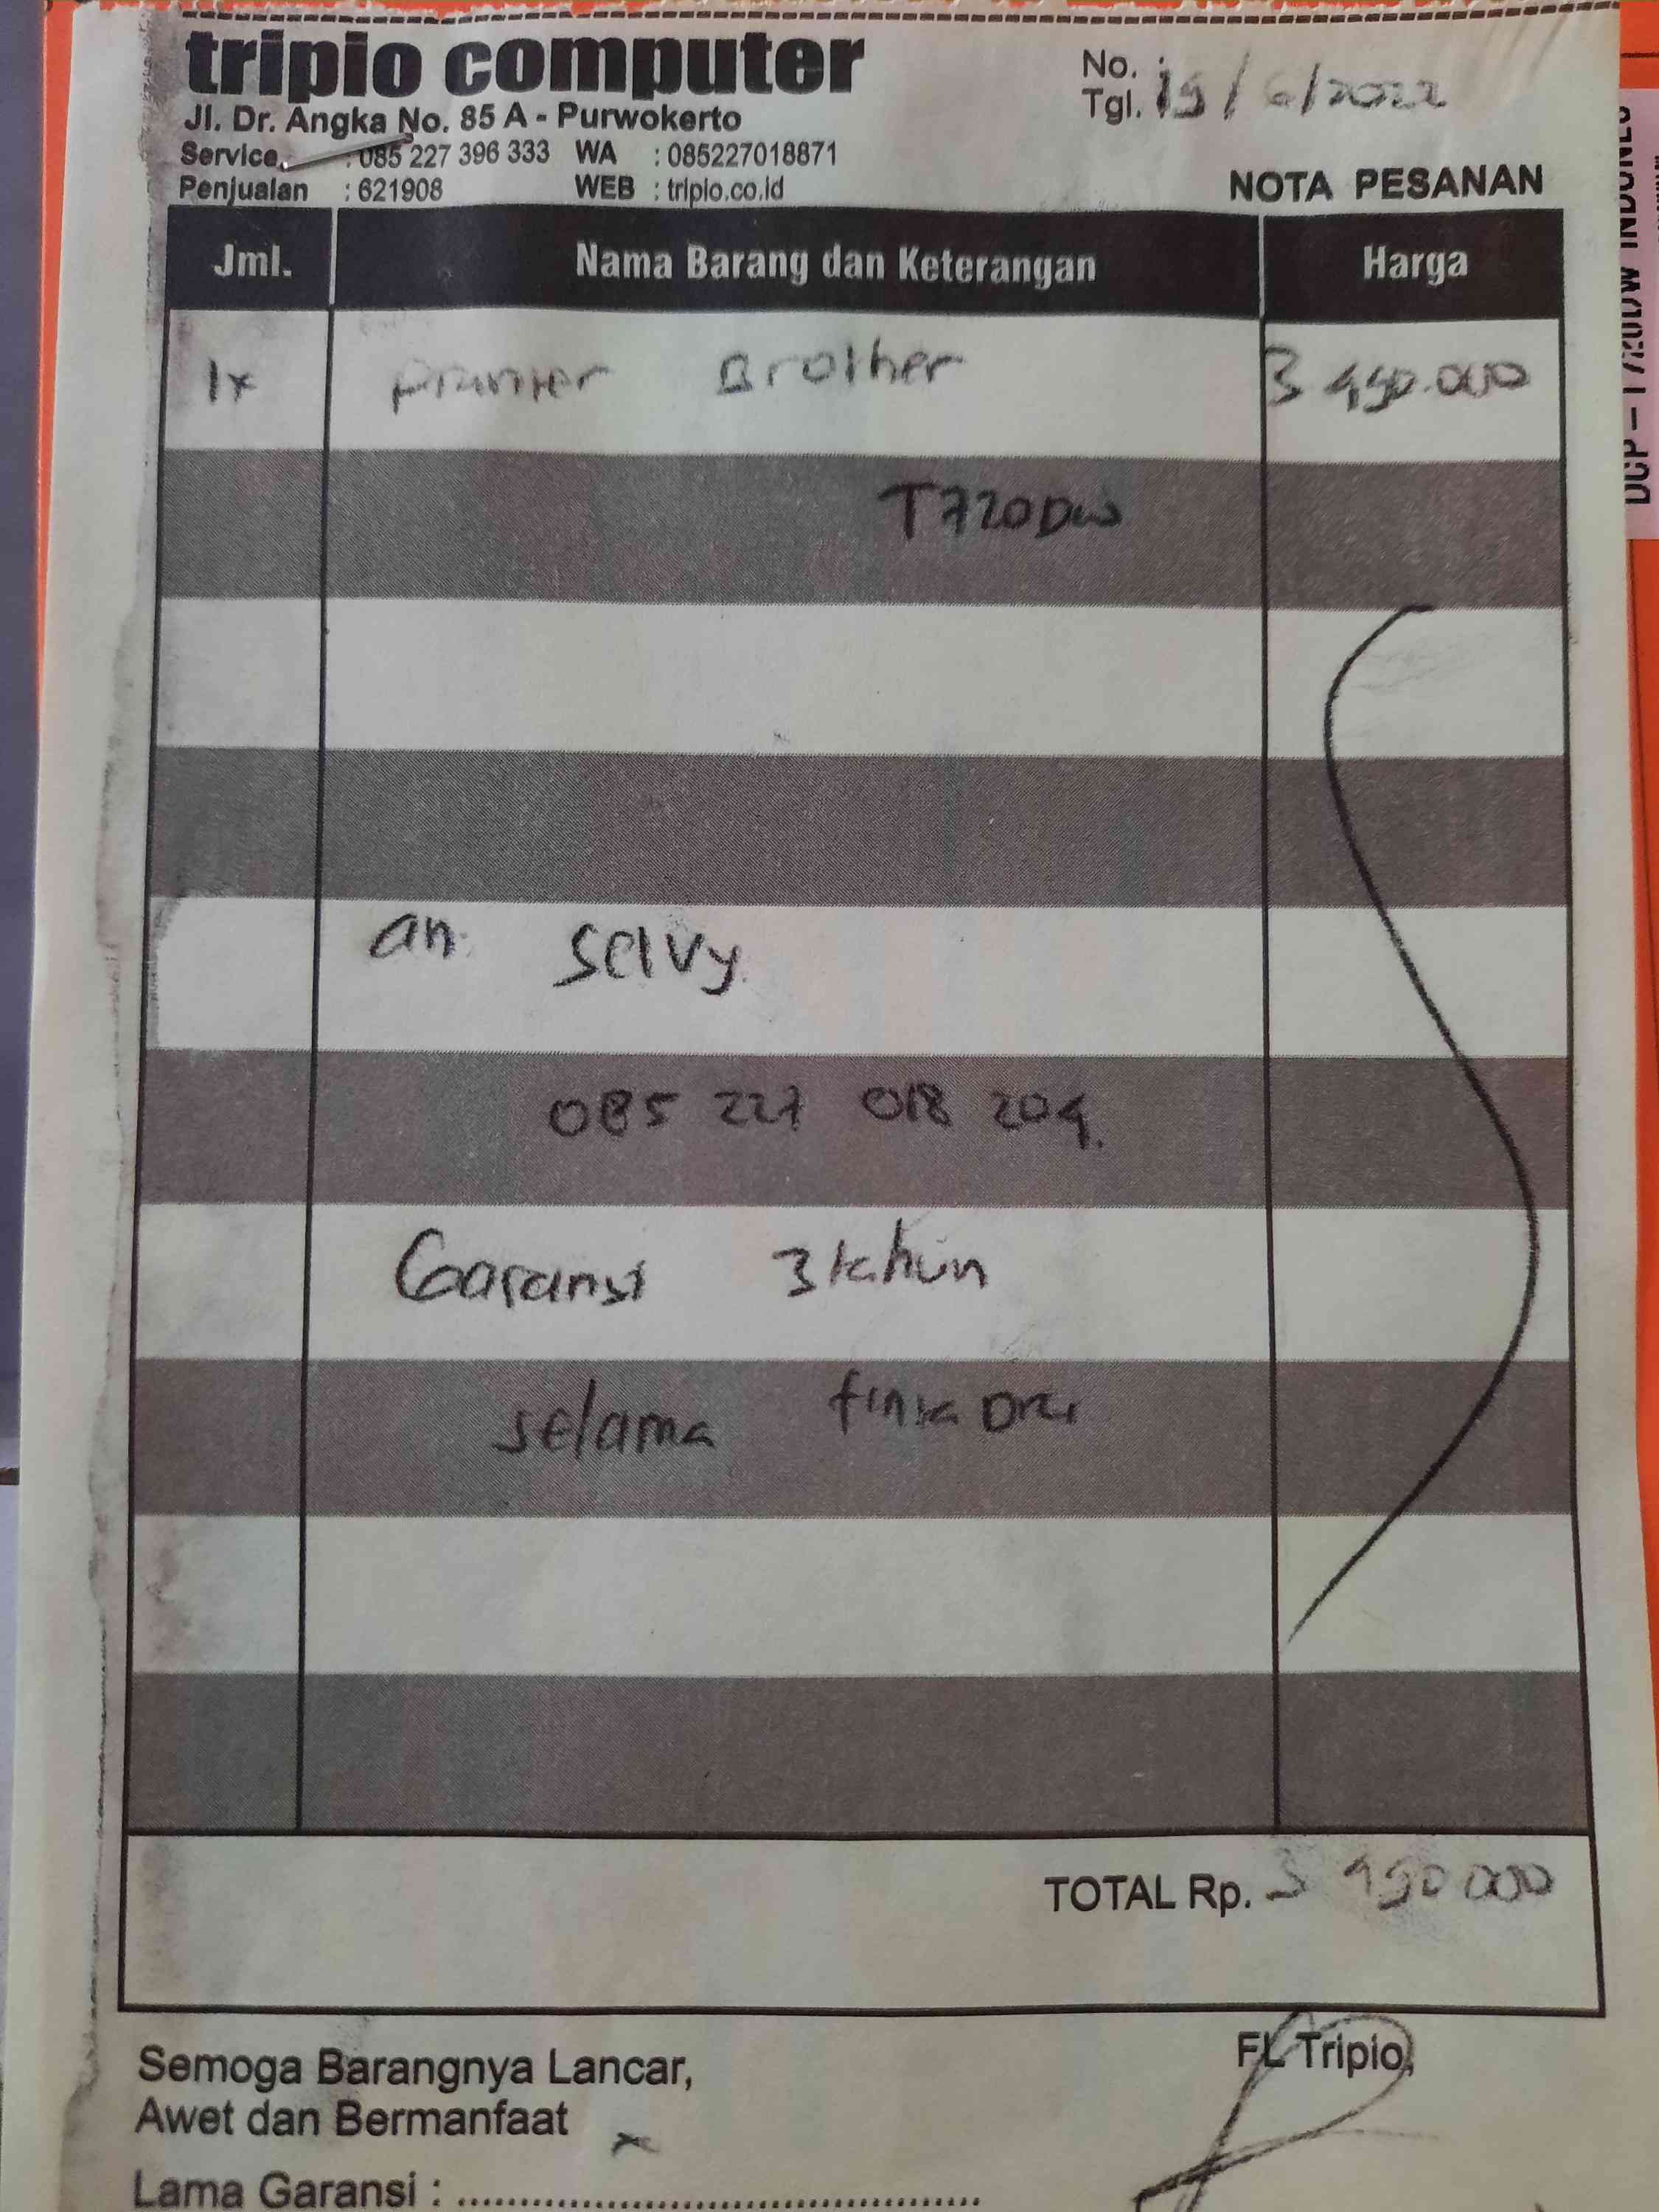 tripio computer
Jl. Dr. Angka No. 85 A - Purwokerto
Service : 085 227 396 333 WA : 085227018871
Penjualan : 621908 WEB : tripio.co.id
No. :
Tgl. 19/6/2022
NOTA PESANAN
Jml. Nama Barang dan Keterangan Harga
1x printer Brother 3 490.000
T720DW
an. Selvy
085 227 018 204.
Garansi 3 tahun
selama tinta Ori
TOTAL Rp. 3 490 000
Semoga Barangnya Lancar,
Awet dan Bermanfaat
FL Tripio,
Lama Garansi : ..........................................